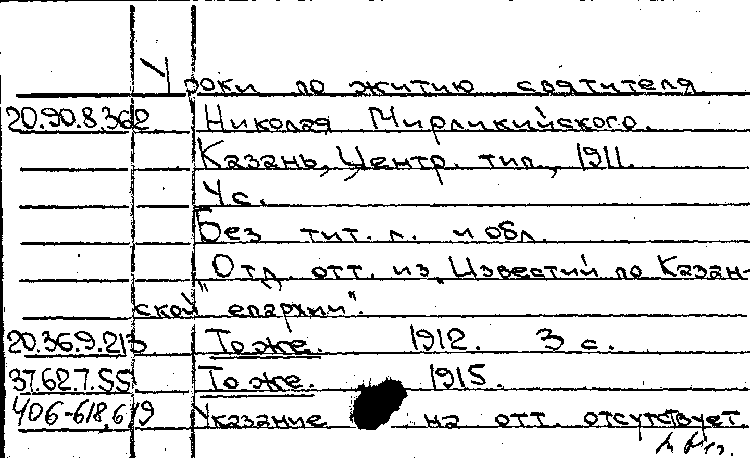 Уроки по житию святителя
20.90.8.362 Николая Мирликийского.
Казань, Центр. тип., 1911.
4 с.
Без тит. л. и обл.
"Отд. отт. из "Известий по Казан-
ской епархии".
20.36.9.213 То же. 1912. 3 с.
37.62.7.55 То же. 1915.
406-618,619 Указание на отт. отсутствует.